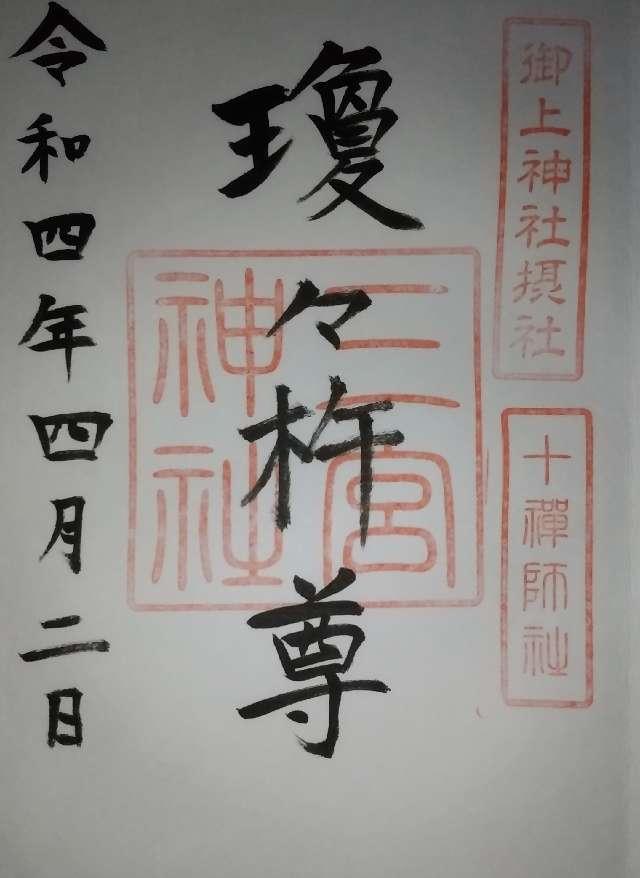 御上神社摂社
十禅師社
三宮
神社
瓊々杵尊
令和四年四月二日